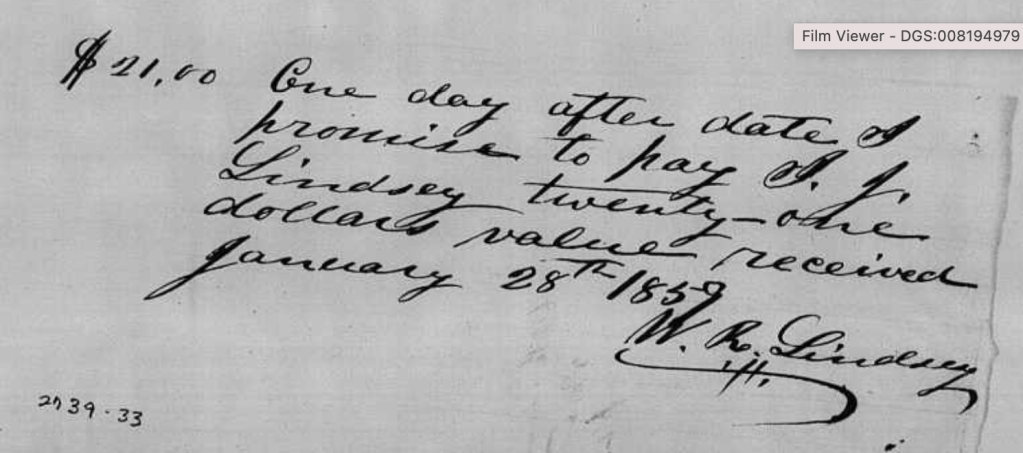 Film Viewer - DGS:008194979
$21,00 One day after date I
promise to pay I. J.
Lindsey twenty-one
dollars value received
January 28th 1859
W. R. Lindsey
2739-33